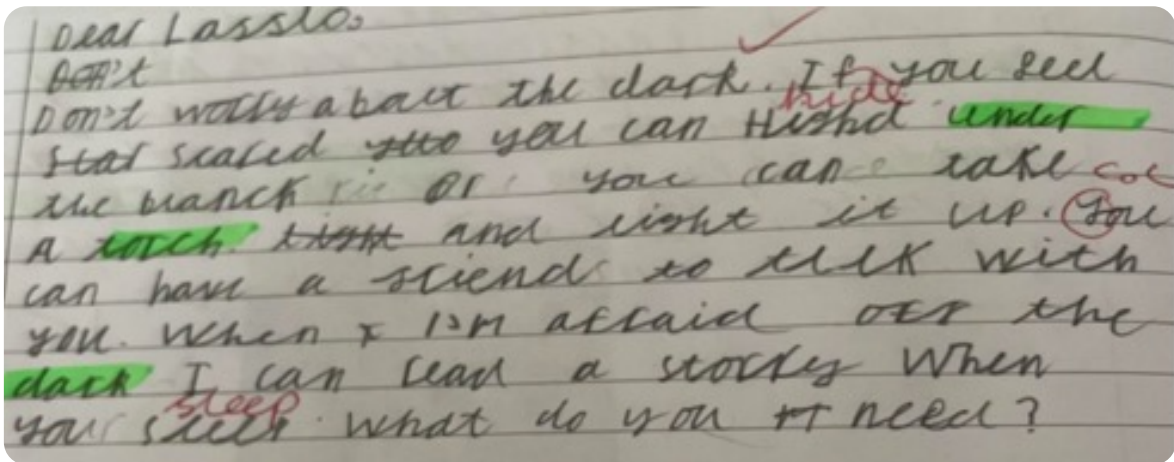 Dear Lasslo,
Don't
Don't worry about the dark. If you feel
scared you can Highd hide under
the blanck or you can take
A torch light and light it up. You
can have a friend to tulk with
you. When I I'm affraid off the
dark I can read a storrey When
your sleep What do you need?